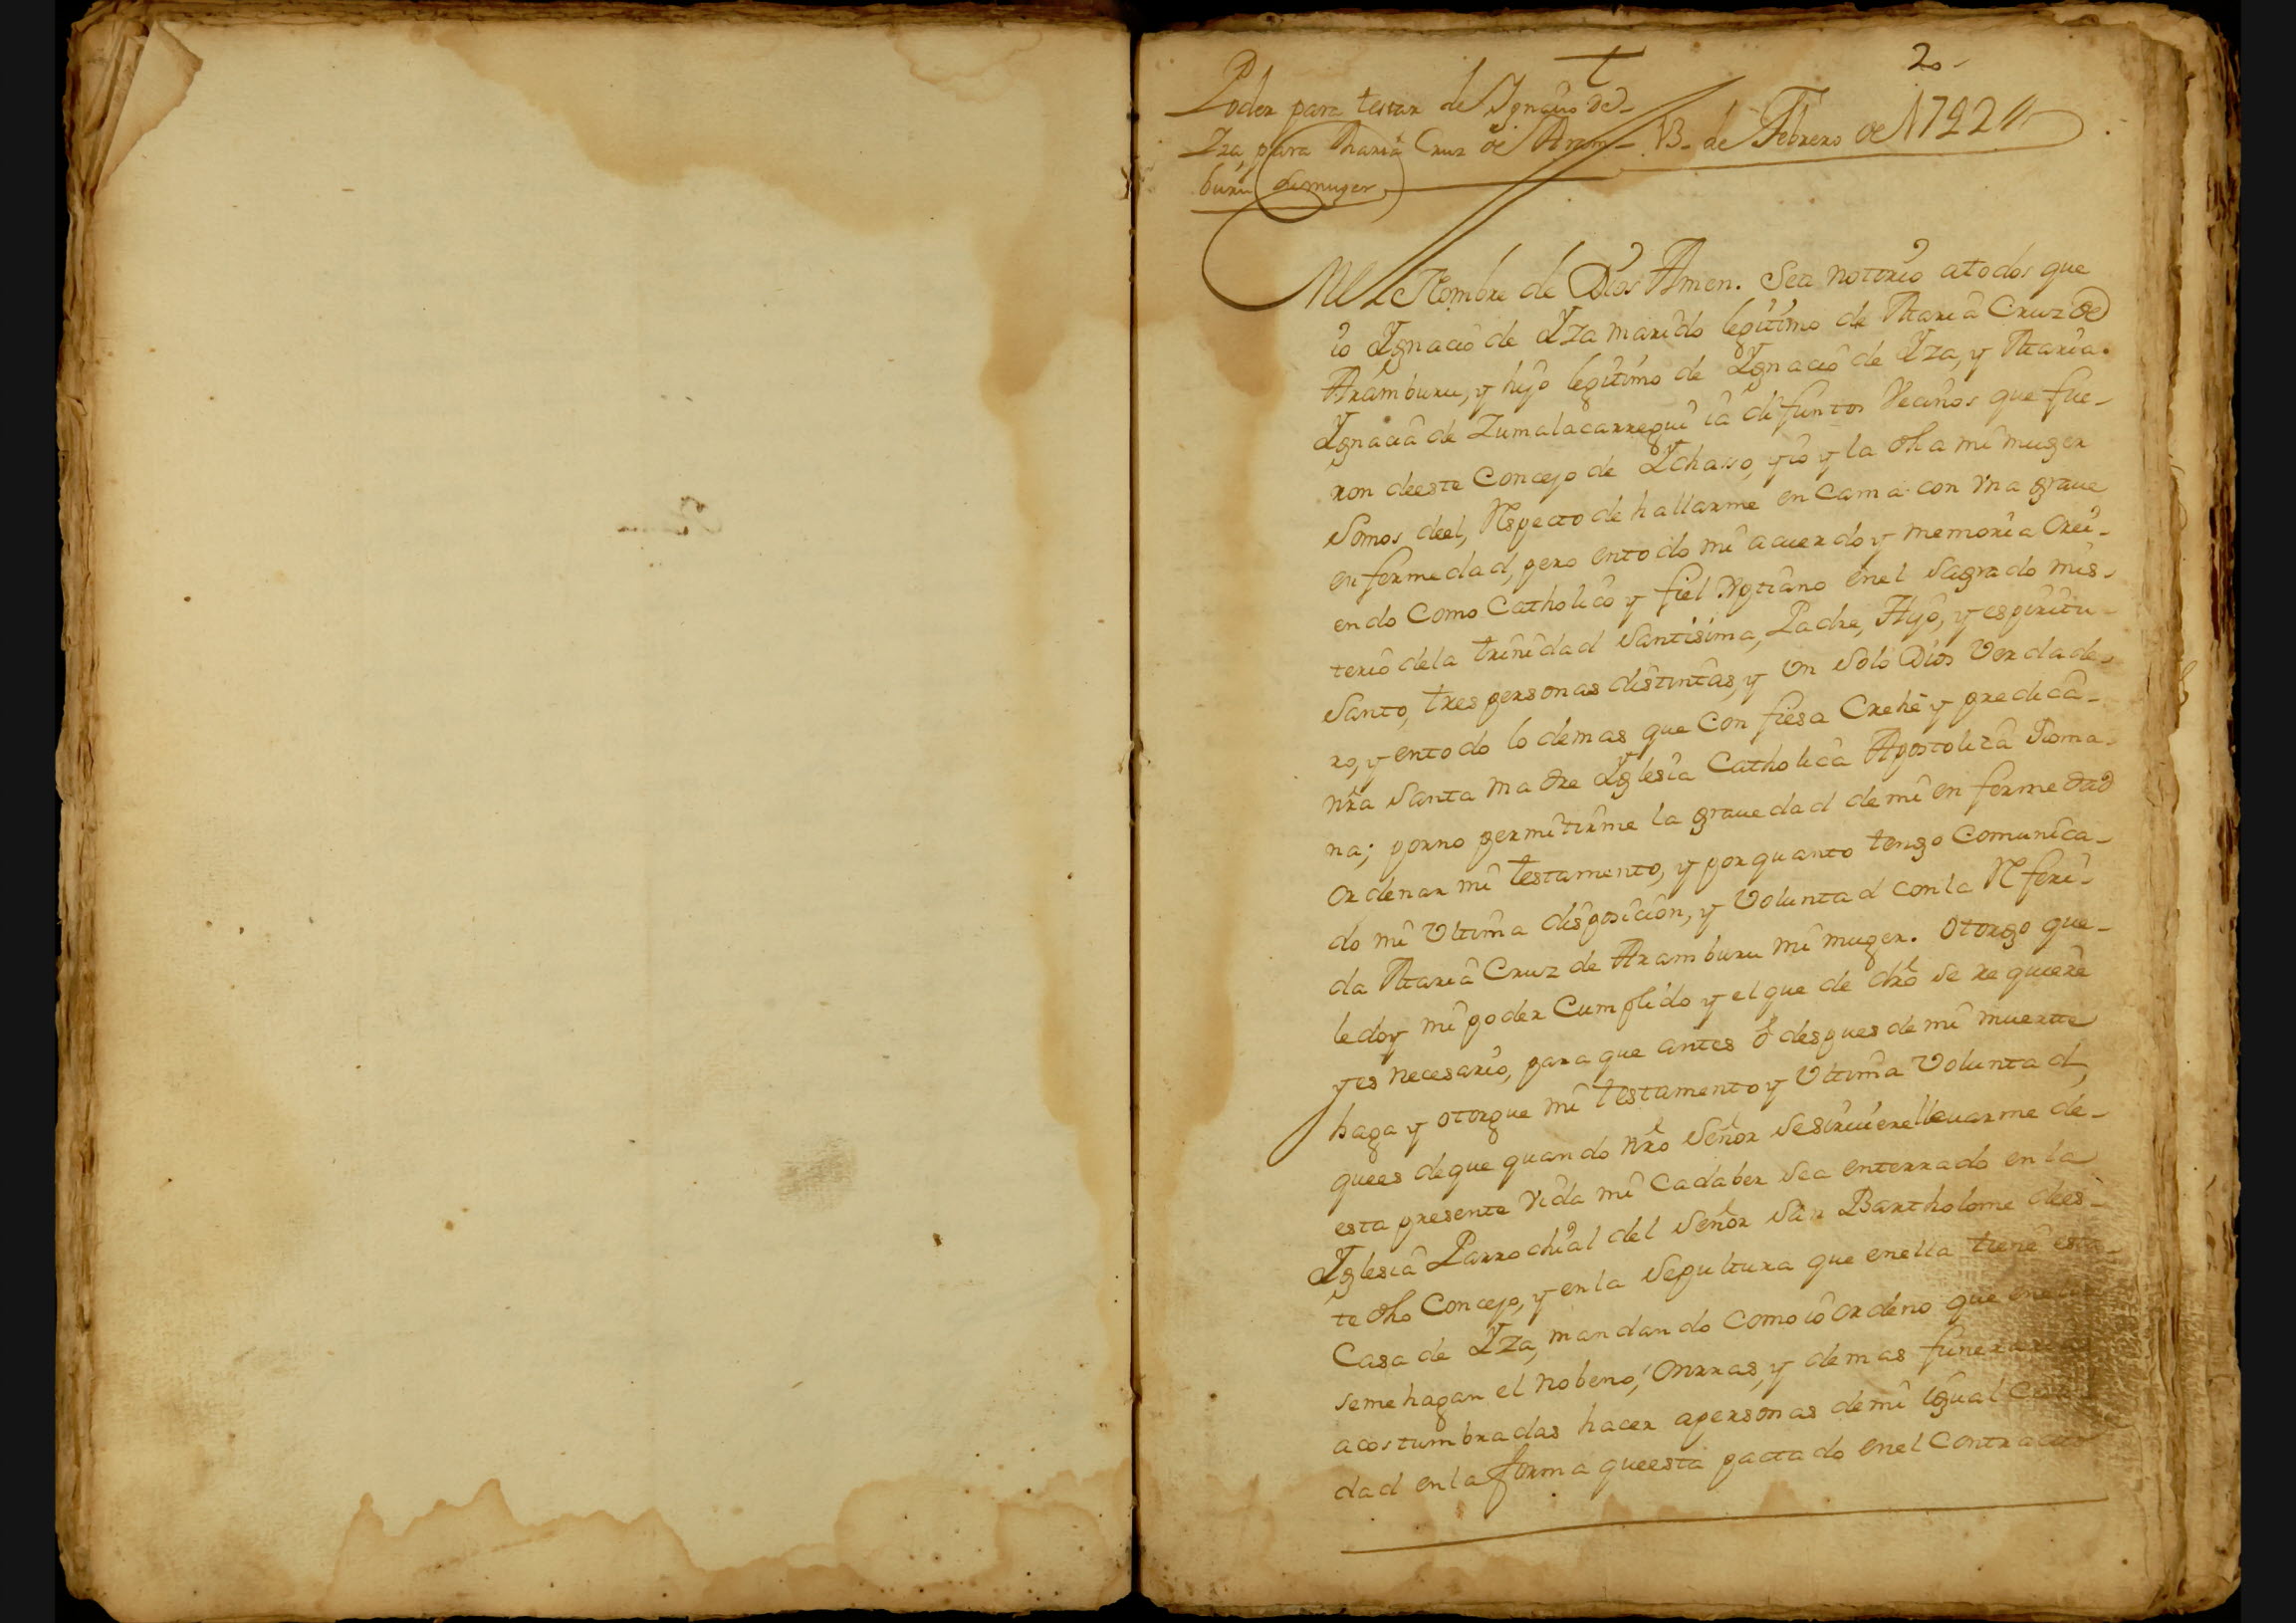 t
20
Poder para testar de Ygnacio de
Yza, para Maria Cruz de Aram-
buru su muger
13 de Febrero de 1722
En el Nombre de Dios Amen. Sea notorio atodos que
io Ygnacio de Yza marido legitimo de Maria Cruz de
Aramburu, y hijo legitimo de Ygnacio de Yza, y Maria
Ygnacia de Zumalacarregui ia difuntos Vecinos que fue-
ron deeste Concejo de Ychasso, y io y la dha mi muger
Somos deel, Respecto de hallarme en Cama con Vna graue
enfermedad, pero entodo mi acuerdo y memoria Crei-
endo Como Catholico y fiel Xptiano enel Sagrado mis-
terio dela trinidad Santisima, Padre, Hijo, y espiritu-
Santo, tres personas distintas, y Vn Solo Dios Verdade-
ro, y entodo lo demas que Confiesa Crehe y predica-
nra Santa Madre Yglesia Catholica Apostolica Roma-
na; porno permitirme la grauedad demi enfermedad
Ordenar mi testamento, y porquanto tengo Comunica-
do mi Vltima disposicion, y Voluntad conla Referi-
da Maria Cruz de Aramburu mi muger. Otorgo que-
ledoy mi poder Cumplido y elque de dro se requiere
yes necesario, para que antes ô despues demi muerte
haga y otorgue mi testamento y Vltima Voluntad,
quees deque quando nro Señor Sesiruiere lleuarme de-
esta presente Vida mi Cadaber Sea enterrado en la
Yglesia Parrochial del Señor San Bartholome dees-
te dho Concejo, y enla Sepultura que enella tiene esta
Casa de Yza, mandando Como io Ordeno que
Semehagan el nobeno, Onrras, y demas funerarias
acostumbradas hacer apersonas demi igual
dad enla forma queesta pactado enel Contracto